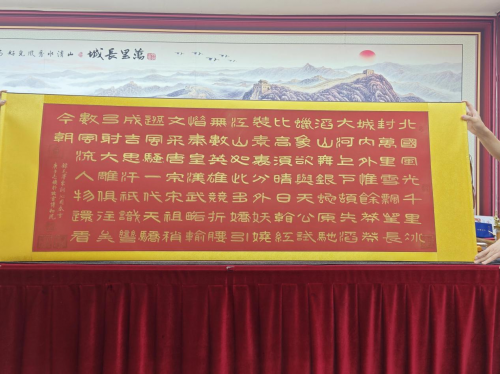 萬里長城
山清水秀風光好
北國風光千里冰
封萬里雪飄望長
城內外惟餘莽莽
大河上下頓失滔
滔山舞銀蛇原馳
蠟象欲與天公試
比高須晴日看紅
裝素裹分外妖嬈
江山如此多嬌引
無數英雄競折腰
惜秦皇漢武略輸
文采唐宗宋祖稍
遜風騷一代天驕
成吉思汗祇識彎
弓射大雕俱往矣
數風流人物還看
今朝